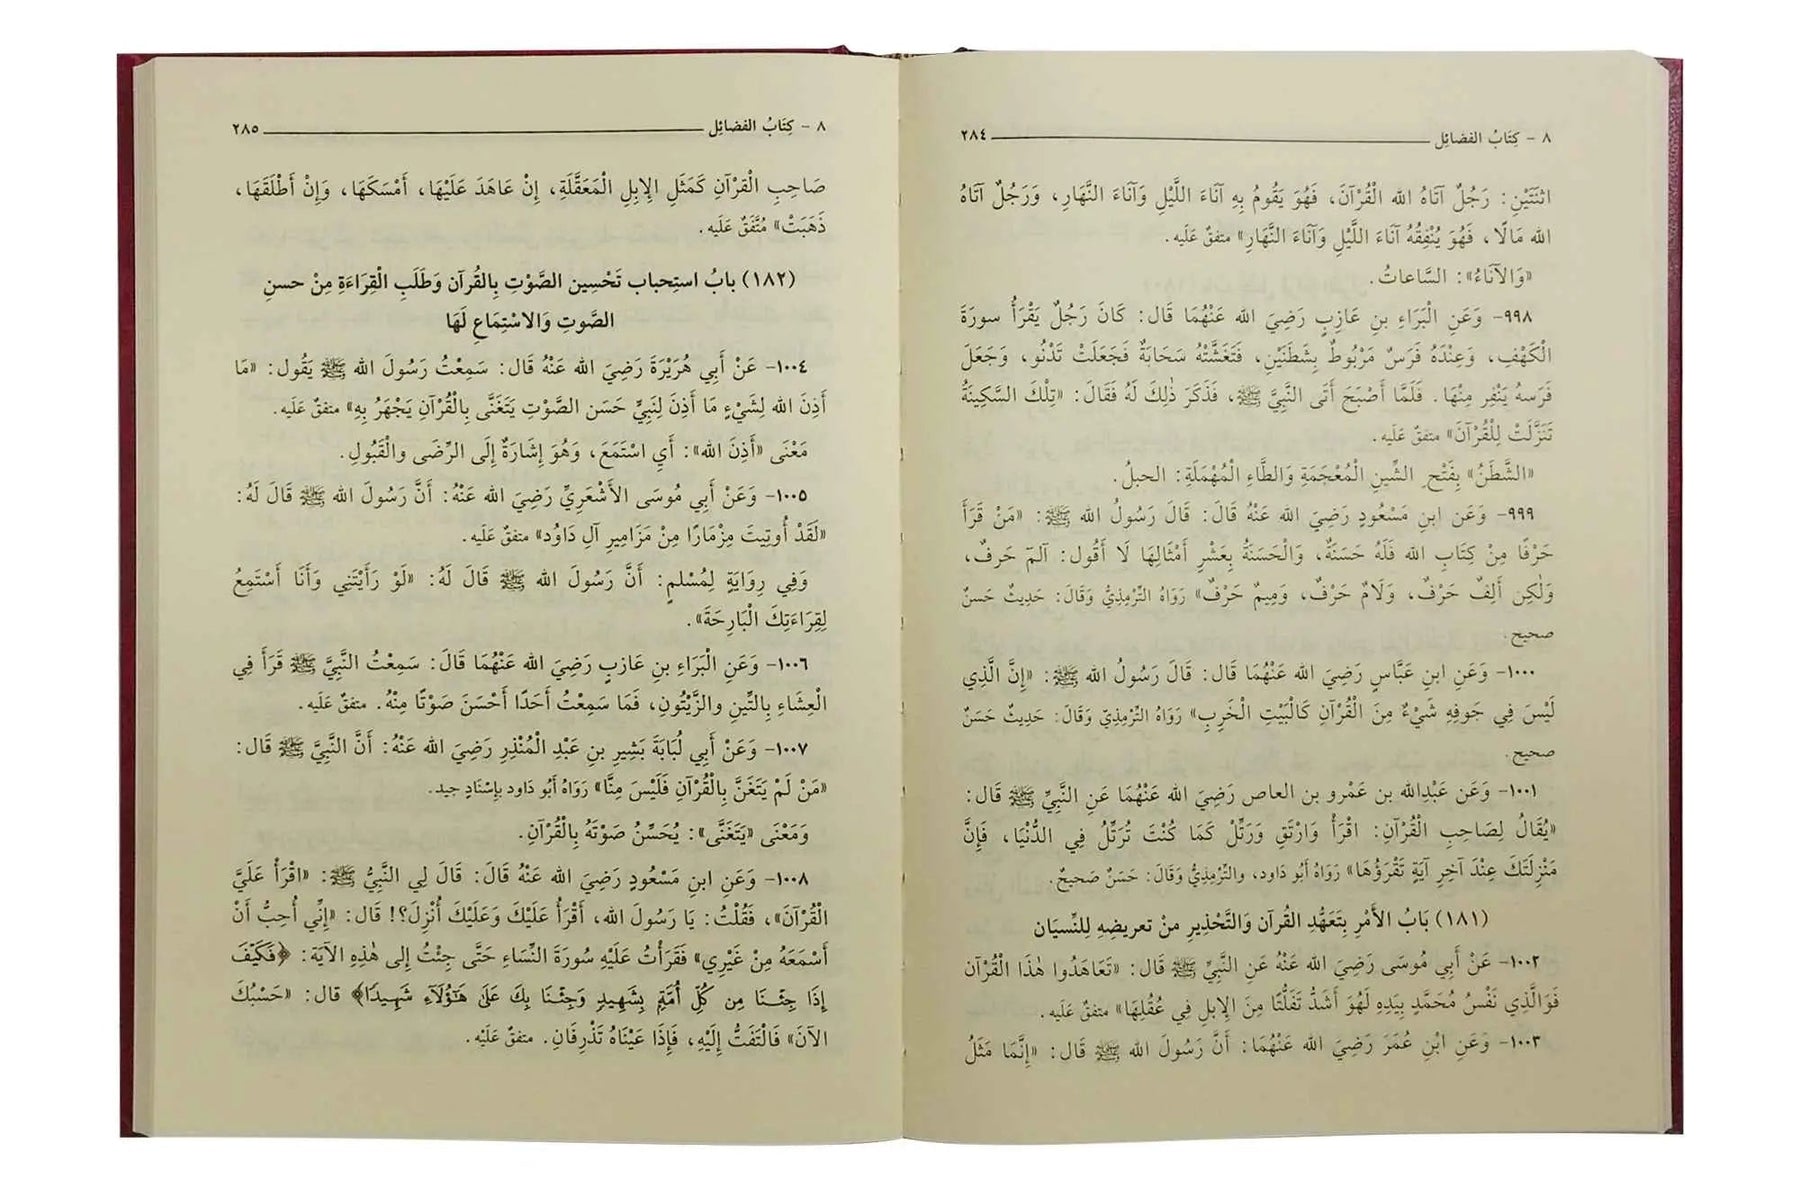 ٨ - كِتَابُ الفضائِل ٢٨٤
اثنَتَيْنِ: رَجُلٌ آتَاهُ الله الْقُرْآنَ، فَهُوَ يَقُومُ بِهِ آنَاءَ اللَّيْلِ وَآنَاءَ النَّهَارِ، وَرَجُلٌ آتَاهُ
الله مَالًا، فَهُوَ يُنْفِقُهُ آنَاءَ اللَّيْلِ وَآنَاءَ النَّهَارِ» متفقٌ عَلَيه.
«وَالآنَاءُ»: السَّاعاتُ.
٩٩٨- وَعَنِ الْبَرَاءِ بنِ عَازِبٍ رَضِيَ الله عَنْهُمَا قَال: كَانَ رَجُلٌ يَقْرَأُ سورَةَ
الْكَهْفِ، وَعِنْدَهُ فَرَسٌ مَرْبُوطٌ بِشَطَنَيْنِ، فَتَغَشَّتْهُ سَحَابَةٌ فَجَعَلَتْ تَدْنُو، وَجَعَلَ
فَرَسهُ يَنْفِر مِنْهَا. فَلَمَّا أَصْبَحَ أَتَى النَّبِيَّ ﷺ، فَذَكَرَ ذٰلِكَ لَهُ فَقَالَ: «تِلْكَ السَّكِينَةُ
تَنَزَّلَتْ لِلْقُرْآنِ» متفقٌ عَلَيه.
«الشَّطَنُ» بِفَتْحِ الشِّينِ الْمُعْجَمَةِ وَالطَّاءِ الْمُهْمَلَةِ: الحبلُ.
٩٩٩- وَعَنِ ابنِ مَسْعُودٍ رَضِيَ الله عَنْهُ قَالَ: قَالَ رَسُولُ الله ﷺ: «مَنْ قَرَأَ
حَرْفًا مِنْ كِتَابِ الله فَلَهُ حَسَنَةٌ، وَالْحَسَنَةُ بِعَشْرِ أَمْثَالِهَا لَا أَقُول: آلمٓ حَرفٌ،
وَلٰكِن أَلِفٌ حَرْفٌ، وَلَامٌ حَرْفٌ، وَمِيمٌ حَرْفٌ» رَوَاهُ التِّرْمِذِيُّ وَقَالَ: حَدِيثٌ حَسَنٌ
صحيح.
١٠٠٠- وَعَنِ ابنِ عَبَّاسٍ رَضِيَ الله عَنْهُمَا قَال: قَالَ رَسُولُ الله ﷺ: «إِنَّ الَّذِي
لَيْسَ فِي جَوفِهِ شَيْءٌ مِنَ الْقُرْآنِ كَالْبَيْتِ الْخَرِبِ» رَوَاهُ التِّرْمِذِيّ وَقَالَ: حَدِيثٌ حَسَنٌ
صحيح.
١٠٠١- وَعَن عَبْدِالله بن عَمْرو بن العاص رَضِيَ الله عَنْهُمَا عَنِ النَّبِيِّ ﷺ قَال:
«يُقَالُ لِصَاحِبِ الْقُرْآنِ: اقْرَأْ وَارْتَقِ وَرَتِّلْ كَمَا كُنْتَ تُرَتِّلُ فِي الدُّنْيَا، فَإِنَّ
مَنْزِلَتَكَ عِنْدَ آخِرِ آيَةٍ تَقْرَؤُهَا» رَوَاهُ أَبُو دَاود، والتِّرْمِذِيُّ وَقَالَ: حَسَنٌ صَحيحٌ.
(١٨١) بَابُ الأَمْرِ بِتَعَهُّدِ القُرآن وَالتَّحْذِيرِ منْ تعريضِهِ لِلنِّسيَان
١٠٠٢- عَنْ أَبِي مُوسَى رَضِيَ الله عَنْهُ عَنِ النَّبِيِّ ﷺ قَال: «تَعَاهَدُوا هٰذَا الْقُرْآن
فَوَالَّذِي نَفْسُ مُحَمَّدٍ بِيَدِهِ لَهُوَ أَشَدُّ تَفَلُّتًا مِنَ الإِبلِ فِي عُقُلِهَا» متفقٌ عَليه.
١٠٠٣- وَعَنِ ابْنِ عُمَرَ رَضِيَ الله عَنْهُمَا: أَنَّ رَسُولَ الله ﷺ قَال: «إِنَّمَا مَثَلُ
٨ - كِتَابُ الفضائِل ٢٨٥
صَاحِبِ الْقُرْآنِ كَمَثَلِ الإِبِلِ الْمُعَقَّلَةِ، إِنْ عَاهَدَ عَلَيْهَا، أَمْسَكَهَا، وَإِنْ أَطْلَقَهَا،
ذَهَبَتْ» مُتَّفَقٌ عَلَيه.
(١٨٢) بابُ استِحباب تَحْسِين الصَّوْتِ بِالقُرآن وَطَلَبِ الْقِرَاءَةِ مِنْ حسنِ
الصَّوتِ وَالاسْتِمَاعِ لَهَا
١٠٠٤- عَنْ أَبِي هُرَيْرَةَ رَضِيَ الله عَنْهُ قَال: سَمِعْتُ رَسُولَ الله ﷺ يَقُول: «مَا
أَذِنَ الله لِشَيْءٍ مَا أَذِنَ لِنَبِيٍّ حَسَنِ الصَّوْتِ يَتَغَنَّى بِالْقُرْآنِ يَجْهَرُ بِهِ» متفقٌ عَلَيه.
مَعْنَى «أَذِنَ الله»: أَيِ اسْتَمَعَ، وَهُوَ إِشَارَةٌ إِلَى الرِّضَى والْقَبُولِ.
١٠٠٥- وَعَنْ أَبِي مُوسَى الأَشْعَرِيِّ رَضِيَ الله عَنْهُ: أَنَّ رَسُولَ الله ﷺ قَالَ لَهُ:
«لَقَدْ أُوتِيتَ مِزْمَارًا مِنْ مَزَامِيرِ آلِ دَاوُد» متفقٌ عَلَيه.
وَفِي رِوَايَةٍ لِمُسْلمٍ: أَنَّ رَسُولَ الله ﷺ قَالَ لَهُ: «لَوْ رَأَيْتَنِي وَأَنَا أَسْتَمِعُ
لِقِرَاءَتِكَ الْبَارِحَةَ».
١٠٠٦- وَعَنِ الْبَرَاءِ بنِ عَازبٍ رَضِيَ الله عَنْهُمَا قَالَ: سَمِعْتُ النَّبِيَّ ﷺ قَرَأَ فِي
الْعِشَاءِ بِالتِّينِ والزَّيْتُونِ، فَمَا سَمِعْتُ أَحَدًا أَحْسَنَ صَوْتًا مِنْهُ. متفقٌ عَلَيه.
١٠٠٧- وَعَنْ أَبِي لُبَابَةَ بَشِيرِ بنِ عَبْدِ الْمُنْذِرِ رَضِيَ الله عَنْهُ: أَنَّ النَّبِيَّ ﷺ قَال:
«مَنْ لَمْ يَتَغَنَّ بِالْقُرْآنِ فَلَيْسَ مِنَّا» رَوَاهُ أَبُو دَاود بإِسْنَادٍ جيد.
وَمَعْنَى «يَتَغَنَّى»: يُحَسِّنُ صَوْتَهُ بِالْقُرْآنِ.
١٠٠٨- وَعَنِ ابنِ مَسْعُودٍ رَضِيَ الله عَنْهُ قَالَ: قَالَ لِي النَّبِيُّ ﷺ: «اقْرَأْ عَلَيَّ
الْقُرْآنَ»، فَقُلْتُ: يَا رَسُولَ الله، أَقْرَأُ عَلَيْكَ وَعَلَيْكَ أُنْزِلَ؟! قَالَ: «إِنِّي أُحِبُّ أَنْ
أَسْمَعَهُ مِنْ غَيْرِي» فَقَرَأْتُ عَلَيْهِ سُورَةَ النِّسَاءِ حَتَّى جِئْتُ إِلى هٰذِهِ الآيَة: ﴿فَكَيْفَ
إِذَا جِئْنَا مِن كُلِّ أُمَّةٍ بِشَهِيدٍ وَجِئْنَا بِكَ عَلَىٰ هَٰؤُلَاءِ شَهِيدًا﴾ قال: «حَسْبُكَ
الآنَ» فَالْتَفَتُّ إِلَيْهِ، فَإِذَا عَيْنَاهُ تَذْرِفَانِ. متفقٌ عَلَيْه.